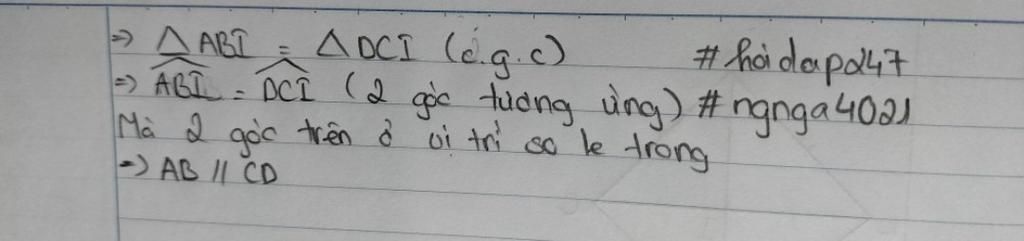 => △ABI = △DCI (c.g.c) #hoidap247
=> \widehat{ABI} = \widehat{DCI} (2 góc tương ứng) #ngnga4021
Mà 2 góc trên ở vị trí so le trong
=> AB // CD